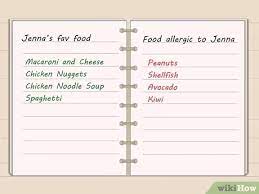 Jenna's fav food
Macaroni and Cheese
Chicken Nuggets
Chicken Noodle Soup
Spaghetti
Food allergic to Jenna
Peanuts
Shellfish
Avocado
Kiwi
wikiHow